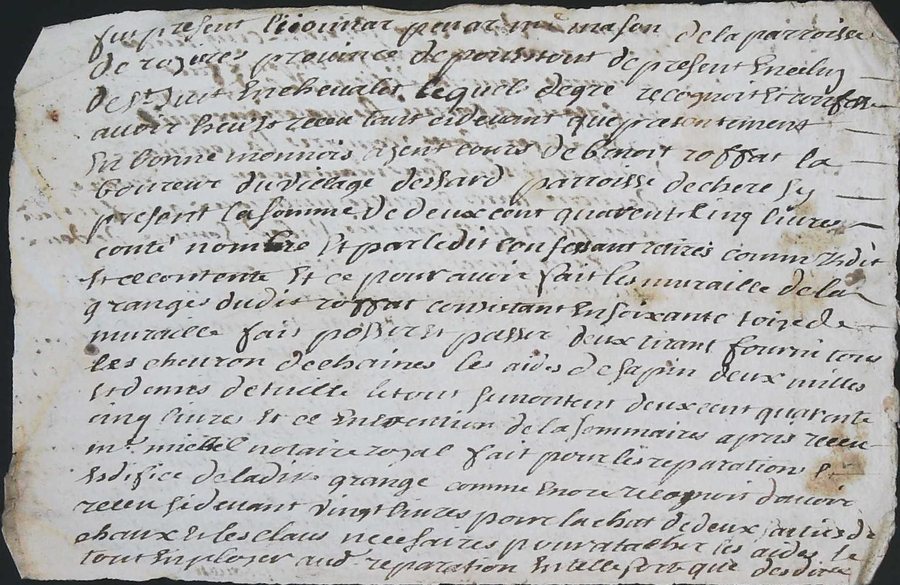 fut present lionnar penar me mason de la parroisse
de rozires province de de present en celuy
de St Just en chevalet lequel de gré recognoit et confesse
avoir heu et receu tant cidevant que presentement
en bonne monnois ayent cours de benoit roffat la
boureur du village dessard parroisse de chere sy
present la somme de deux cent quarente cinq livres
conté nombre et par ledit confessant retirés comm Il dit
et se contente et ce pour avoir fait les muraille de la
grange dudit roffat consistant en soixante toize de
muraille fait posser et passer deux tirant fourni tous
les chevron de chaines les aides de sapin deux milles
et demes de tuille le tout se montent deux cent quarente
cinq livres et ce en de la sommaires apris receu
me michel notaire royal fait pour les reparations et
Edifice de ladite grange comme encore recognoit davoir
receu sidevant vingt livres pour lachat de deux de
chaux et les claus necesaires pour atacher les aides le
tout employer aud reparation en telle sorte que desdire